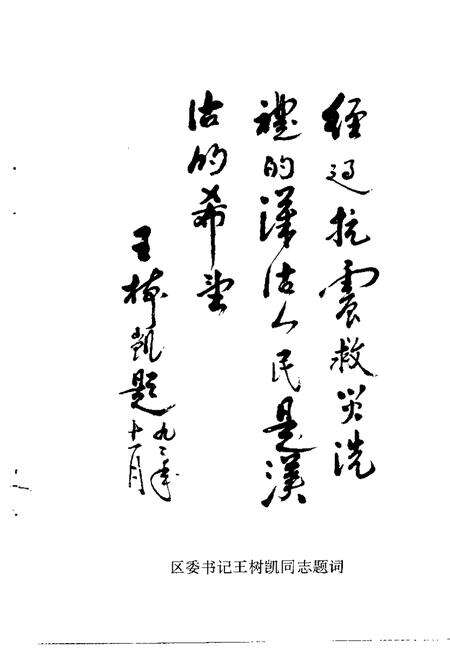 經过抗震救災洗
禮的漢沽人民是漢
沽的希望
王树凯題
九二年
十一月
区委书记王树凯同志题词